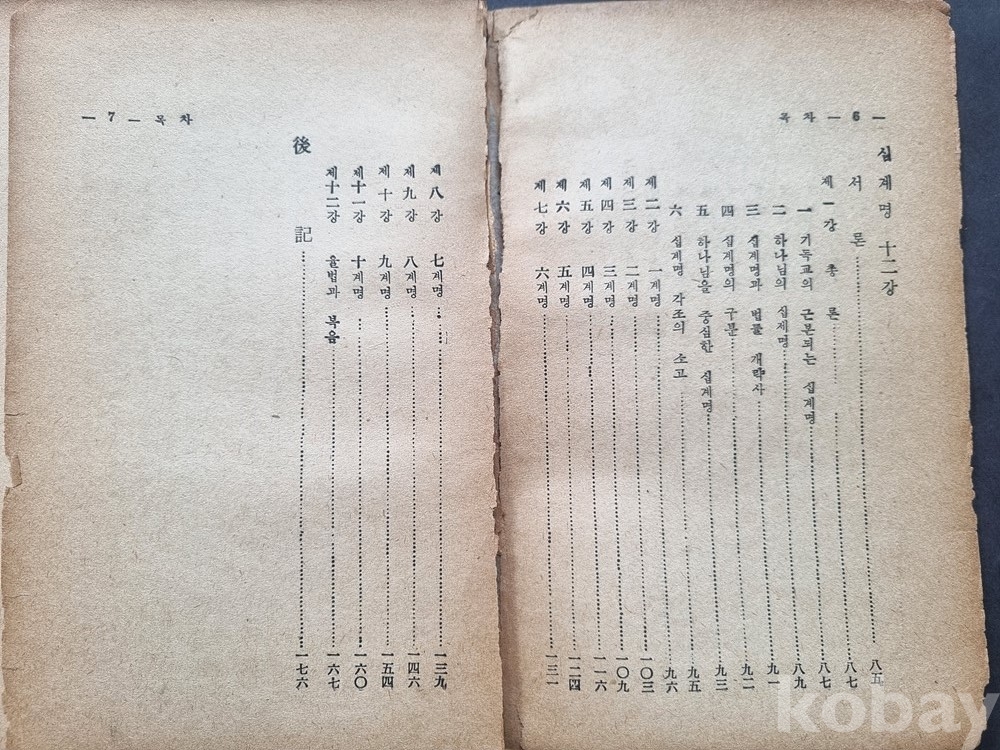 목차 — 6 —
십계명 十二강
서론 八五
제一강 총론 八七
一 기독교의 근본되는 십계명 八七
二 하나님의 십계명 八九
三 십계명과 법률 개략사 九一
四 십계명의 구분 九二
五 하나님을 중심한 십계명 九三
六 십계명 각조의 소고 九五
제二강 一계명 九六
제三강 二계명 一〇三
제四강 三계명 一〇九
제五강 四계명 一一六
제六강 五계명 一二四
제七강 六계명 一三一
— 7 — 목차
제八강 七계명 一三九
제九강 八계명 一四六
제十강 九계명 一五四
제十一강 十계명 一六〇
제十二강 율법과 복음 一六七
後記 一七六
kobay